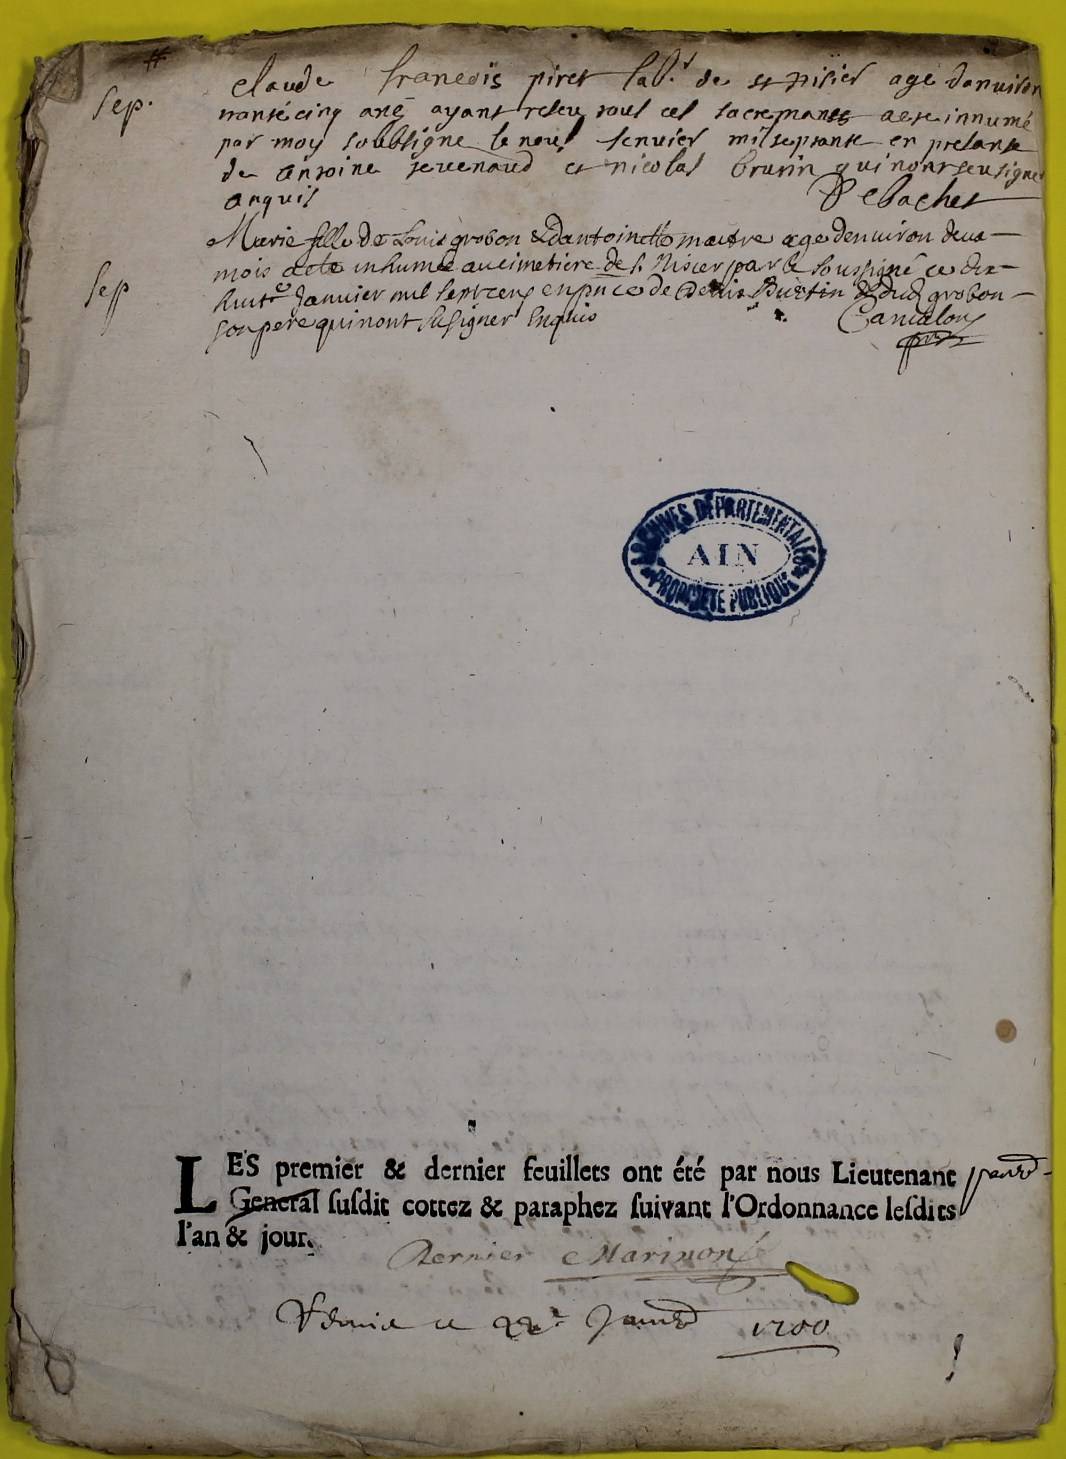 #
Sep. Claude francois piret lab.r de st nisier age danviron
ans ayant receu tous ces sacremants a este innumé
par moy soubsigne le neuf Jenvier mil septante en presanse
de antoine et nicolas brunin qui nont sceu signer
anquis
Marie fille de Louis grobon & dantoinette maitre age denviron deux
Sep mois a ete inhumée au cimetiere de s. Nisier par le soussigné ce dix
huit.e Janvier mil sept cens en pnce de Denis Burtin & dud grobon
son pere qui nont su signer Enquis
ARCHIVES DÉPARTEMENTALES
AIN
PROPRIÉTÉ PUBLIQUE
LES premier & dernier feuillets ont été par nous Lieutenant
General susdit cottez & paraphez suivant l'Ordonnance lesdits
l'an & jour.
Dernier
ce 1700